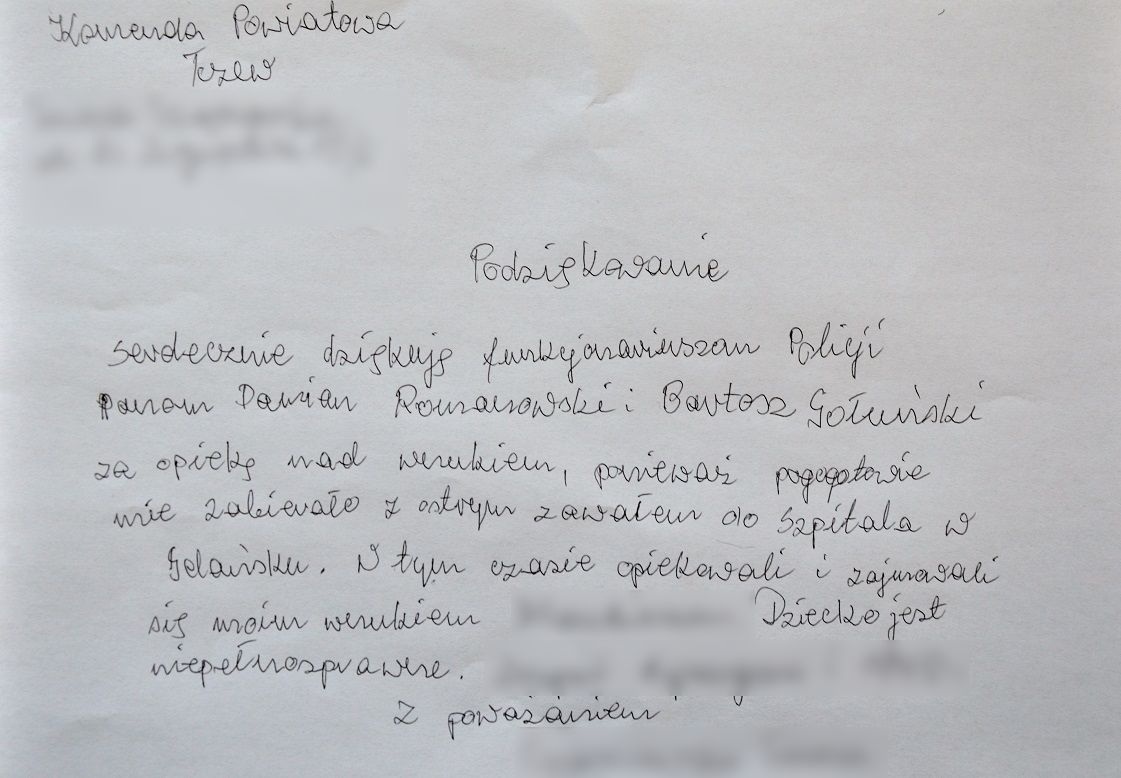 Komenda Powiatowa
Tczew
Podziękowanie
serdecznie dziękuję funkcjonariuszom Policji
panom Damian Romanowski i Bartosz Gołuński
za opiekę nad wnukiem, ponieważ pogogotowie
mie zabierało z ostrym zawałem do Szpitala w
Gdańsku. W tym czasie opiekowali i zajmowali
się moim wnukiem Dziecko jest
niepełnosprawne.
Z poważaniem